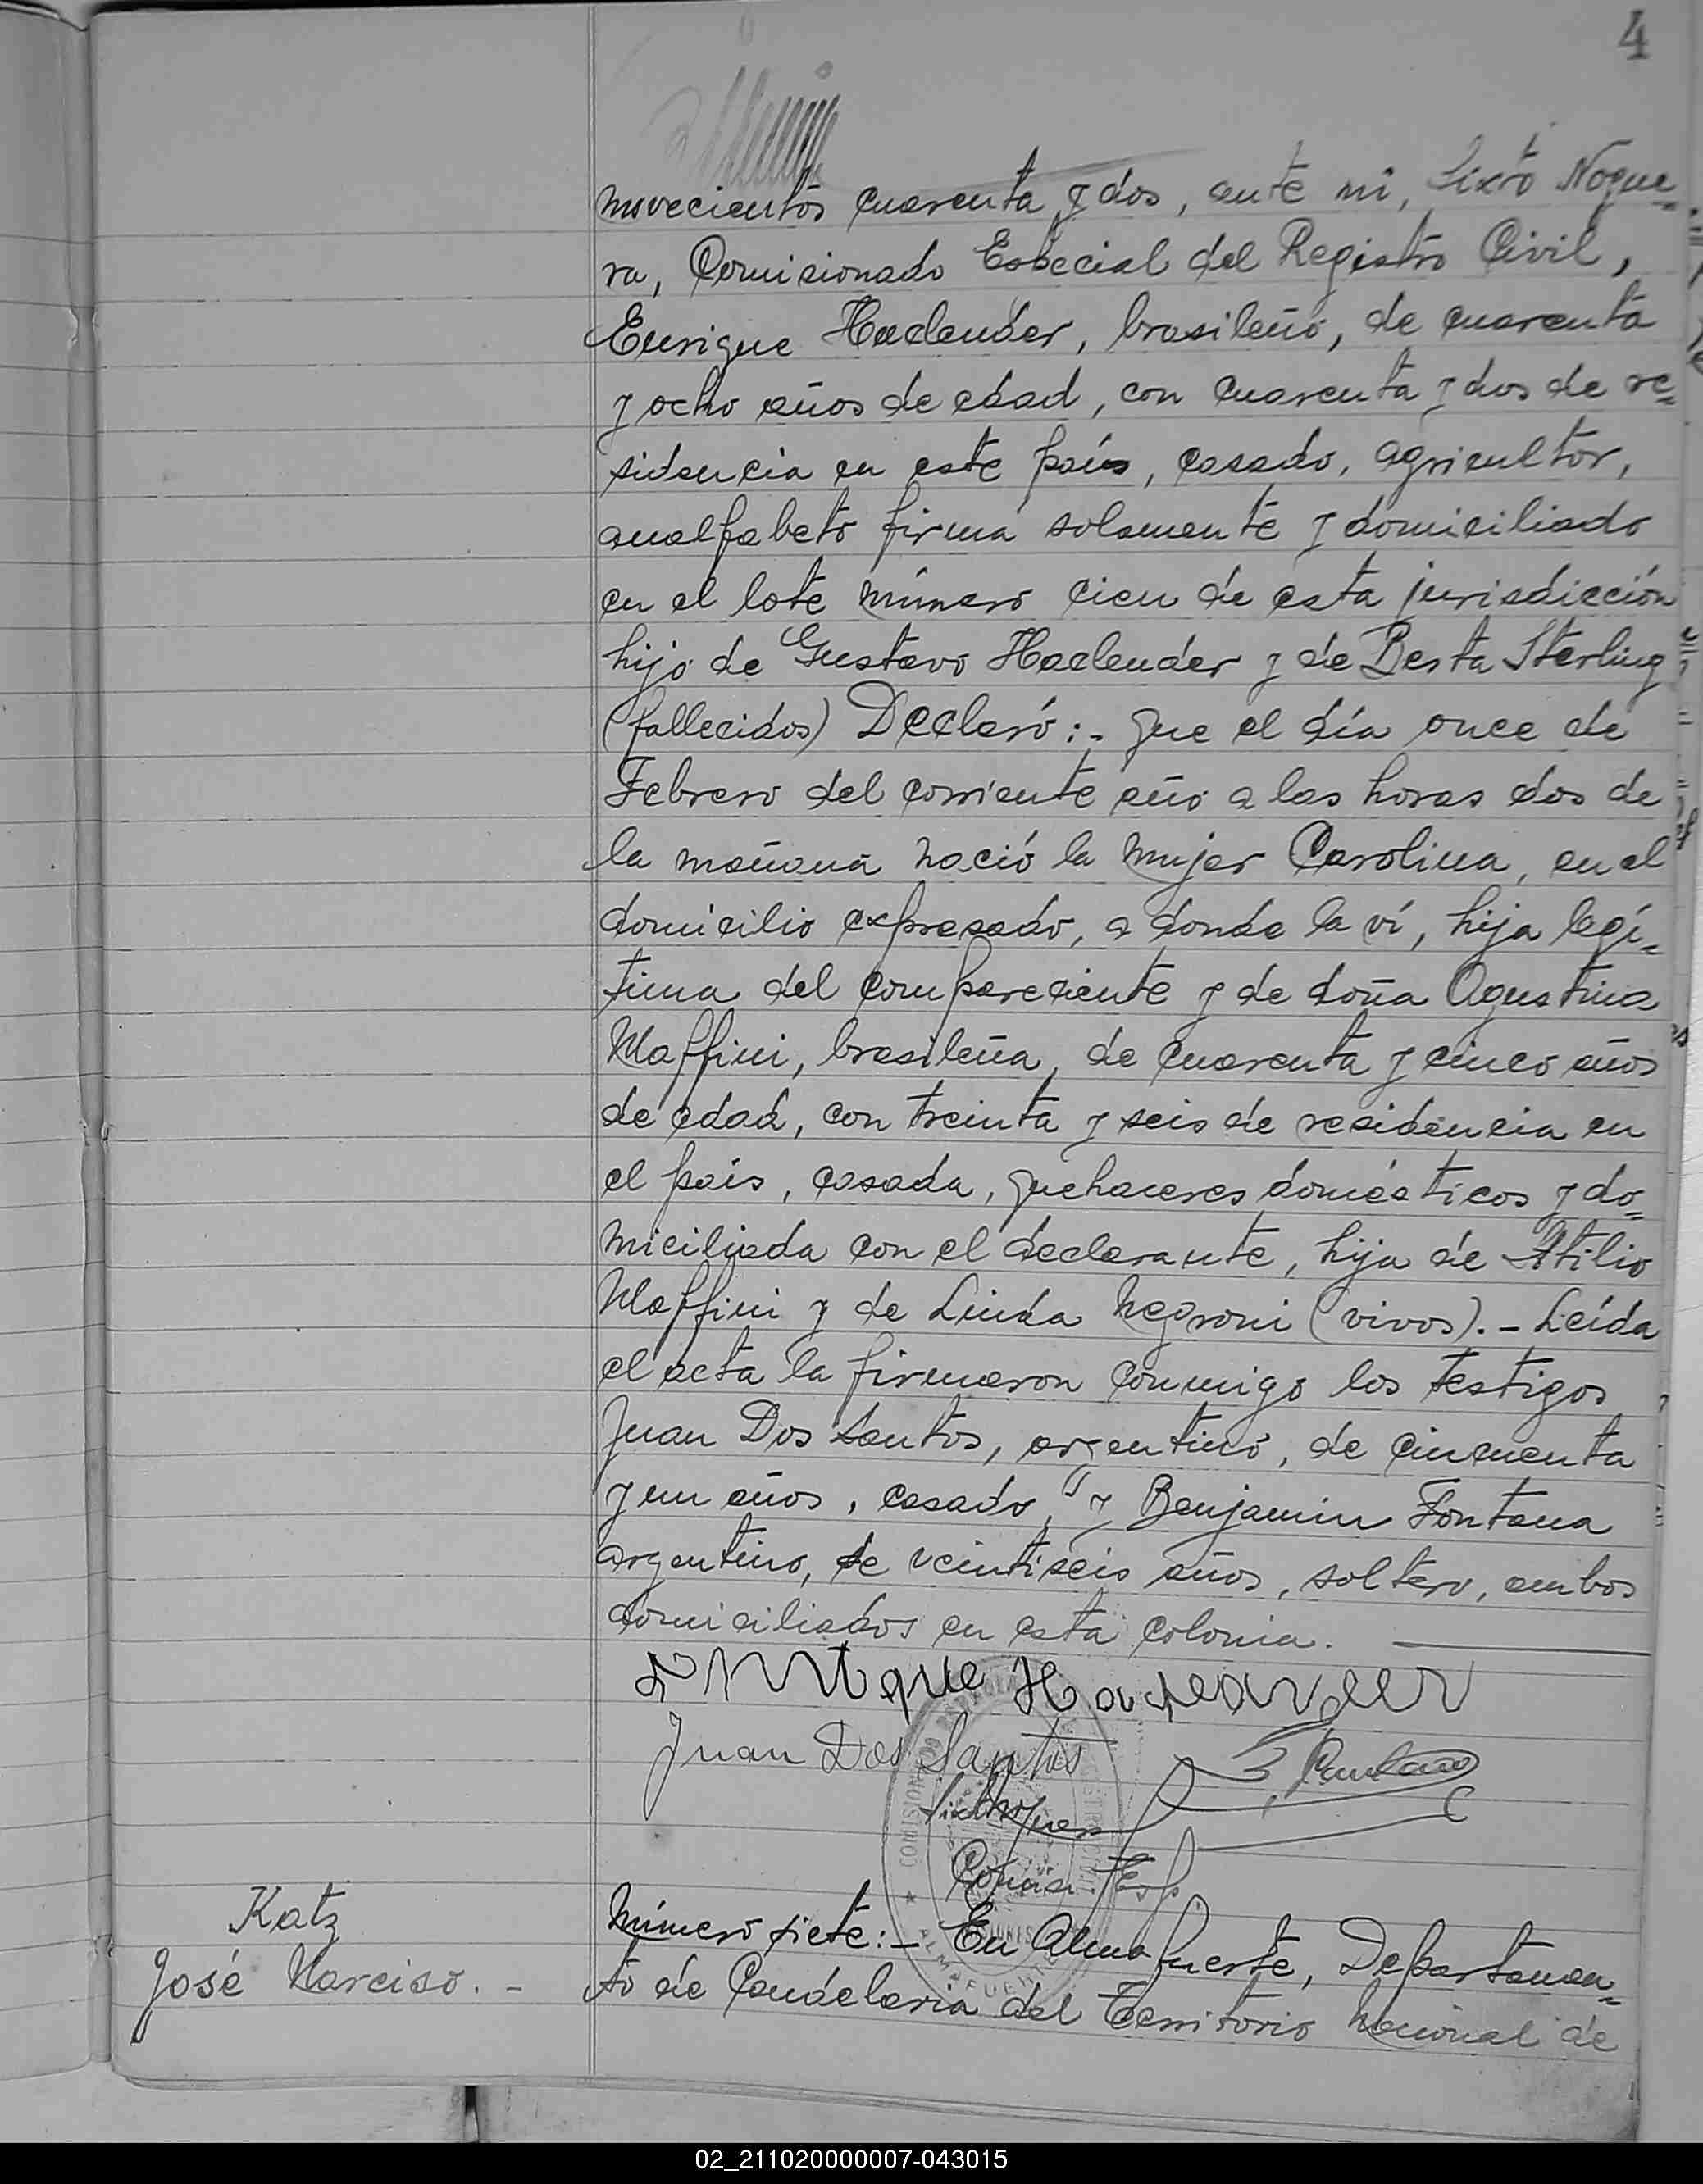 4
novecientos cuarenta y dos, ante mí, Sixto Nogue=
ra, Comisionado Especial del Registro Civil,
Enrique Haclander, brasileño, de cuarenta
y ocho años de edad, con cuarenta y dos de re=
sidencia en este país, casado, agricultor,
analfabeto firma solamente y domiciliado
en el lote número cien de esta jurisdicción
hijo de Gustavo Haclender y de Berta Sterling
(fallecidos) Declaró:- que el día once de
Febrero del corriente año a las horas dos de
la mañana nació la mujer Carolina, en el
domicilio expresado, a donde la ví, hija legí=
tima del compareciente y de doña Agustina
Maffini, brasileña, de cuarenta y cinco años
de edad, con treinta y seis de residencia en
el país, casada, quehaceres domésticos y do=
miciliada con el declarante, hija de Atilio
Maffini y de Linda Negroni (vivos).- Leída
el acta la firmaron conmigo los testigos
Juan Dos Santos, argentino, de cincuenta
y un años, casado, y Benjamin Fontana
argentino, de veintiseis años, soltero, ambos
domiciliados en esta colonia.
Juan Dos Santos
Comis. Esp.
Katz
José Narciso.-
Número siete:- En Almafuerte, Departamen=
to de Candelaria del Territorio Nacional de
02_211020000007-043015